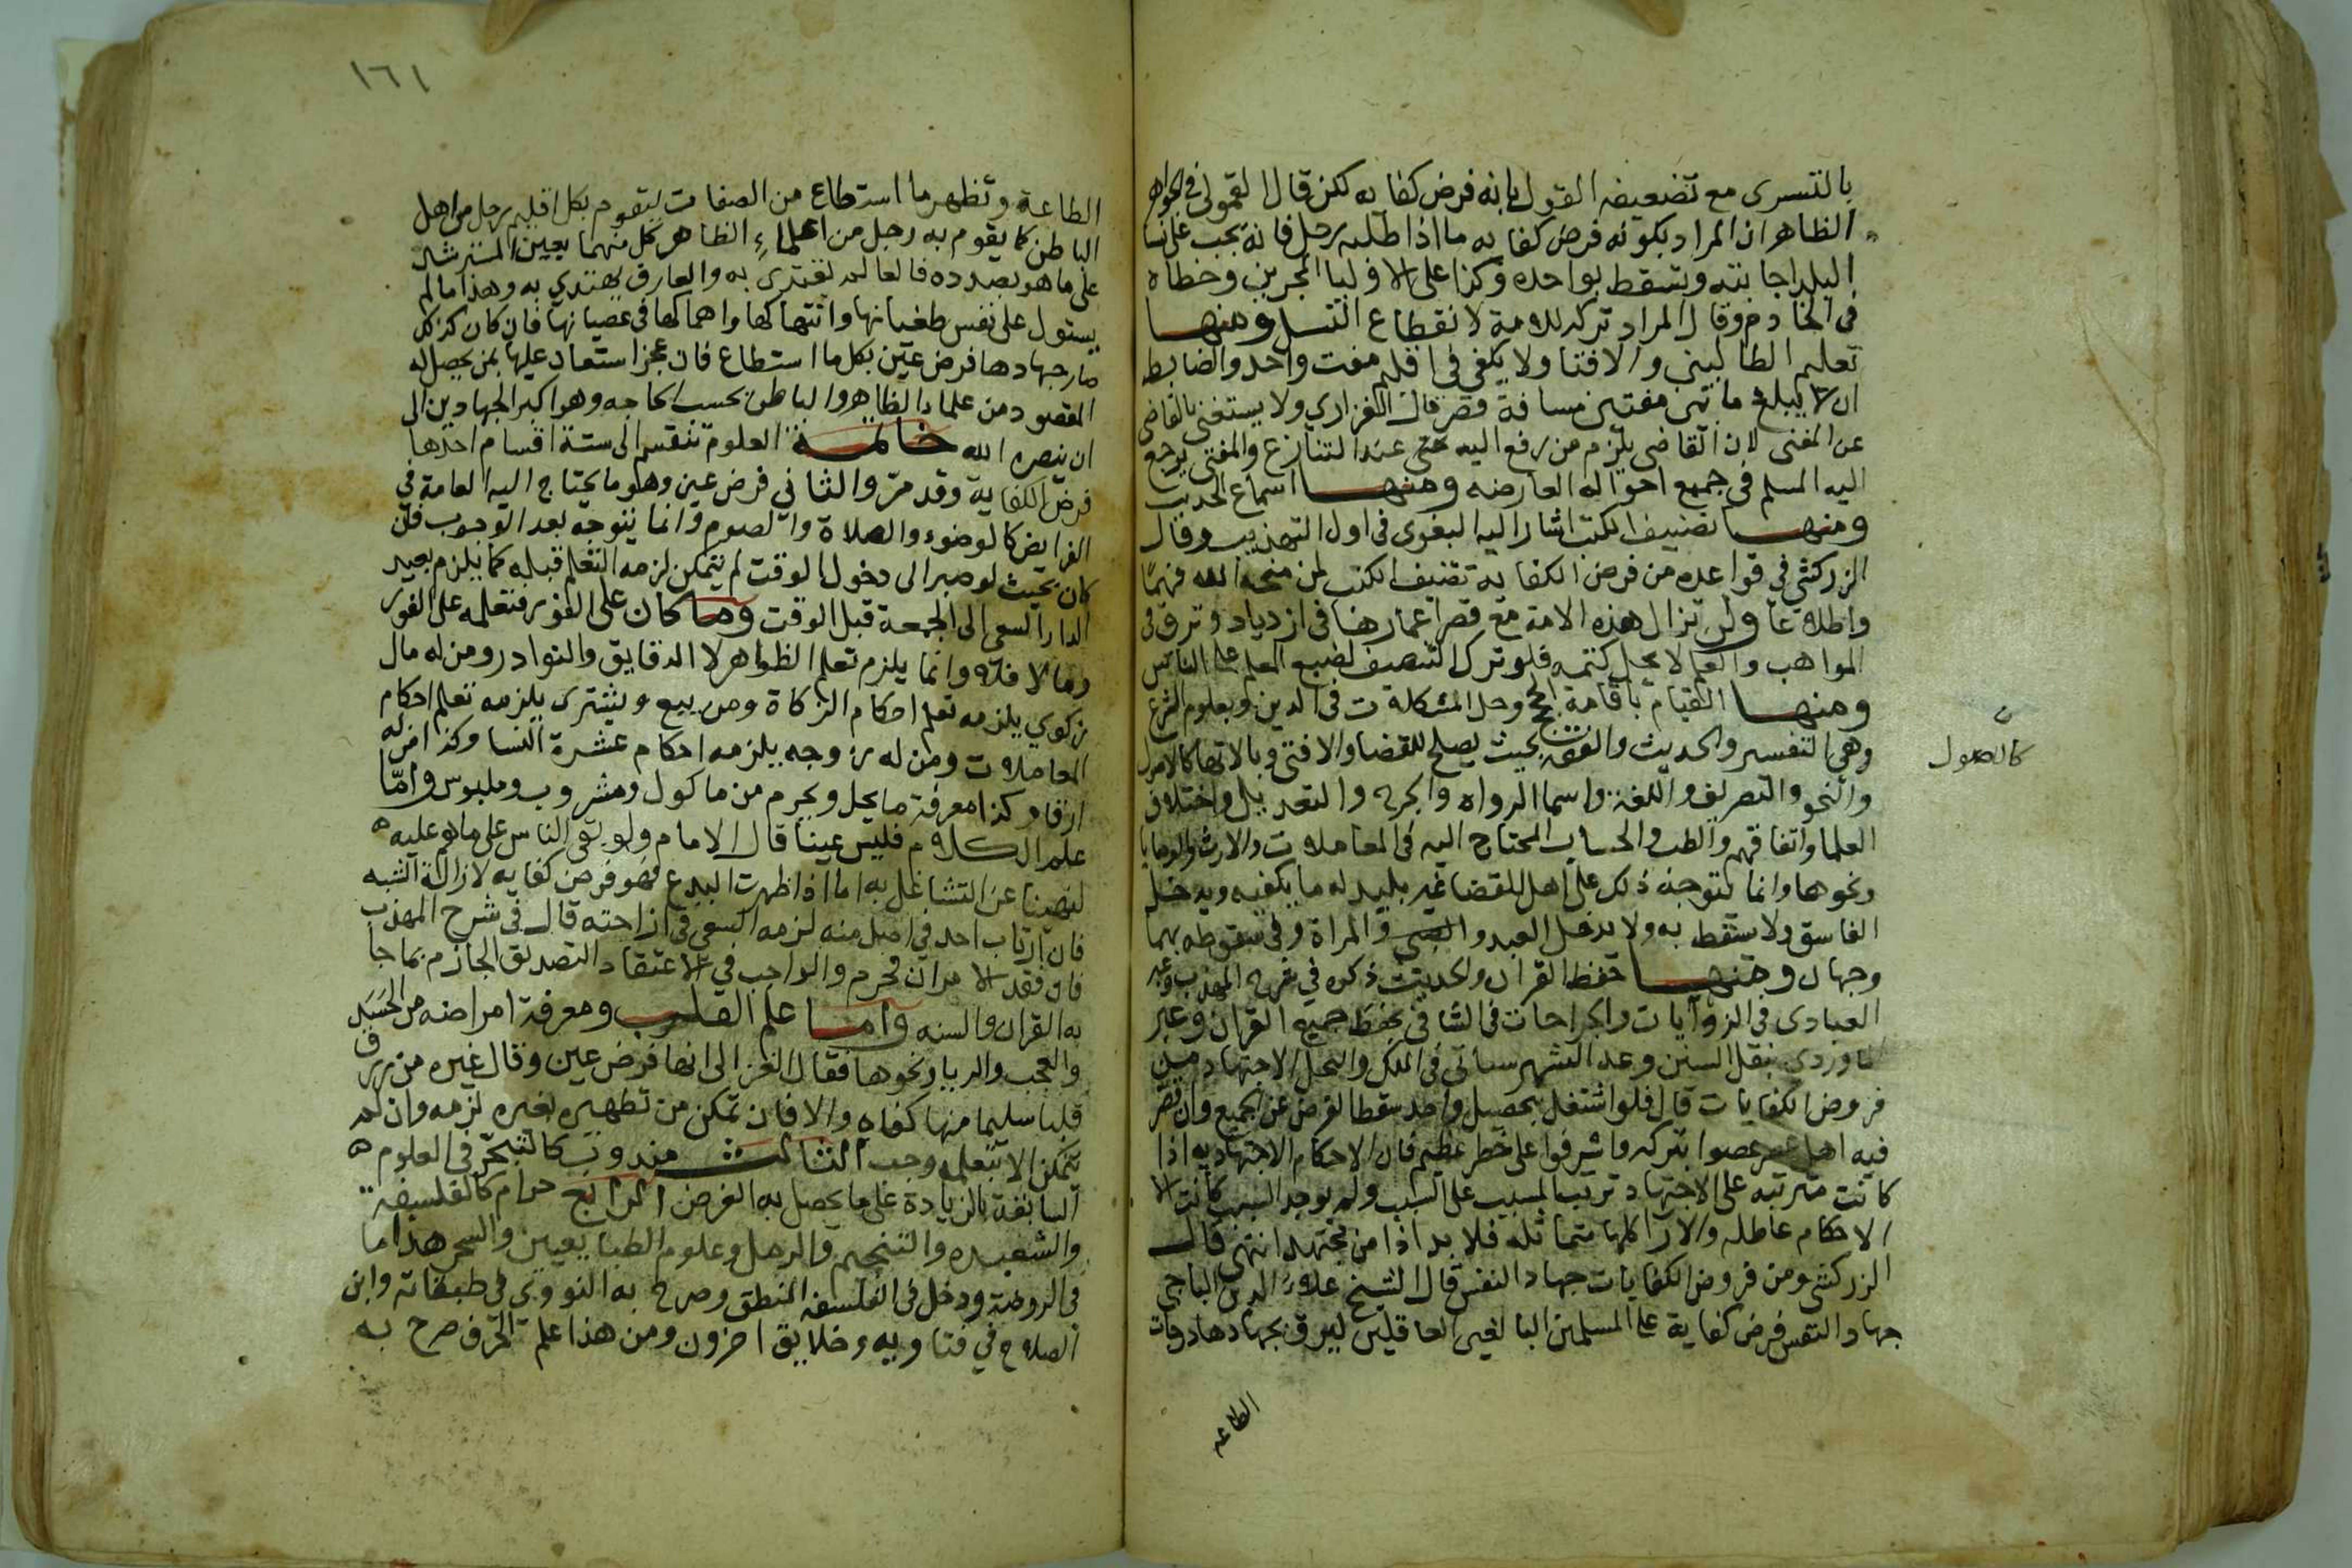 بالتسرى مع تضعيفه القول بانه فرض كفايه لكن قال القمولى فى الجواهر
الظاهر ان المراد بكونه فرض كفايه ما اذا طلبه رجل فانه يجب على نسا
البلد اجابته ويسقط بواحده وكذا على الاوليا المجبرين وخطاه
فى الخادم وقال المراد تركه للامة لانقطاع النسل ومنها
تعليم الطالبين والافتا ولا يكفى فى اقليم مفت واحد والضابط
ان لا يبلغ ما بين مفتيين مسافة قصر قال الفزاري ولا يستغنى بالقاضى
عن المفتى لان القاضى يلزم من رفع اليه عند التنازع والمفتى يرجع
اليه المسلم فى جميع احواله العارضه ومنها اسماع الحديث
ومنها تصنيف الكتب اشار اليه البغوى فى اول التهذيب وقال
الزركشى فى قواعده من فرض الكفاية تصنيف الكتب لمن منحه الله فهمًا
واطلاعا ولن تزال هذه الامة مع قصر اعمارها فى ازدياد وترق فى
المواهب والعلم لا يحل كتمه فلو ترك التصنيف لضيع العلم على الناس
ومنها القيام باقامة الحجج وحل المشكلات فى الدين وبعلوم الشرع
وهى التفسير والحديث والفقه بحيث يصلح للقضا والافتى وبالاتها كالاصول
والنحو والتصريف واللغة واسما الرواه والجرح والتعديل واختلاف
العلما واتفاقهم والطب والحساب المحتاج اليه فى المعاملات والارث والوصايا
ونحوها وانما يتوجه ذلك على اهل للقضا غير بليد له ما يكفيه ويدخل
الفاسق ولا يسقط به ولا يدخل العبد والصبى والمراة وفى سقوطه بهما
وجهان ومنها حفظ القران والحديث ذكره في شرح المهذب وعبر
العبادى فى الزوايات والجراحات فى الشافى بحفظ جميع القران وعبر
الماوردى بنقل السنن وعد الشهرستانى فى الملل والنحل الاجتهاد من
فروض الكفايات قال فلو اشتغل بتحصيل واحد سقط الفرض عن الجميع وان قصر
فيه اهل عصر عصوا بتركه واشرفوا على خطر عظيم فان الاحكام الاجتهاديه اذا
كانت مترتبه على الاجتهاد ترتب المسبب على السبب ولم يوجد السبب كانت
الاحكام عاطله والارا كلها متماثله فلا بد اذا من مجتهد انتهى قال
الزركشى ومن فروض الكفايات جهاد النفس قال الشيخ علاء الدين الباجى
جهاد النفس فرض كفاية على المسلمين البالغين العاقلين ليرق بجهادها درجات
الطاعه
ن
كالاصول
١٦١
الطاعة وتظهر ما استطاع من الصفات ليقوم بكل اقليم رجل من اهل
الباطن كما يقوم به رجل من علماء الظاهر كل منهما يعين المسترشد
على ما هو بصدده فالعالم يقتدى به والعارف يهتدي به وهذا ما لم
يستول على نفس طغيانها وانتهاكها وانهماكها فى عصيانها فان كان كذلك
صار جهادها فرض عين بكل ما استطاع فان عجز استعان عليها بمن يحصل له
المقصود من علماء الظاهر والباطن بحسب الحاجه وهو اكبر الجهادين الى
ان ينصره الله خاتمة العلوم تنقسم الى ستة اقسام احدها
فرض الكفاية وقد مرّ والثانى فرض عين وهو ما يحتاج اليه العامة فى
الفرايض كالوضوء والصلاة والصوم وانما يتوجه بعد الوجوب فان
كان بحيث لو صبر الى دخول الوقت لم يتمكن لزمه التعلم قبله كما يلزم بعيد
الدار السعى الى الجمعة قبل الوقت وما كان على الفور فتعلمه على الفور
وما لا فلا وانما يلزم تعلم الظواهر لا الدقايق والنوادر ومن له مال
زكوي يلزمه تعلم احكام الزكاة ومن يبيع ويشترى يلزمه تعلم احكام
المعاملات ومن له زوجه يلزمه احكام عشرة النسا وكذا من له
ارقا وكذا معرفة ما يحل ويحرم من ماكول ومشروب وملبوس وامّا
علم الكلام فليس عينا قال الامام ولو بقى الناس على ما هو عليه
لنهينا عن التشاغل به اما اذا ظهرت البدع فهو فرض كفايه لازالة الشبه
فان ارتاب احد فى اصل منه لزمه السعى فى ازاحته قال فى شرح المهذب
فان فقد الامران فحرم والواجب فى الاعتقاد التصديق الجازم بما جا
به القران والسنه واما علم القلوب ومعرفة امراضه من الحسد
والعجب والريا ونحوها فقال الغزالى انها فرض عين وقال غيره من رزق
قلبا سليما منها كفاه والا فان تمكن من تطهيره بغيره لزمه وان لم
يتمكن الا بتعلمه وجب الثالث مندوب كالتبحّر فى العلوم
السابقة بالزيادة على ما يحصل به الفرض الرابع حرام كالفلسفة
والشعبده والتنجيم والرمل وعلوم الطبايعيين والسحر هذا ما
فى الروضة ودخل فى الفلسفه المنطق وصرح به النووى فى طبقاته وابن
الصلاح في فتاويه وخلايق اخرون ومن هذا علم الحرف صرح به